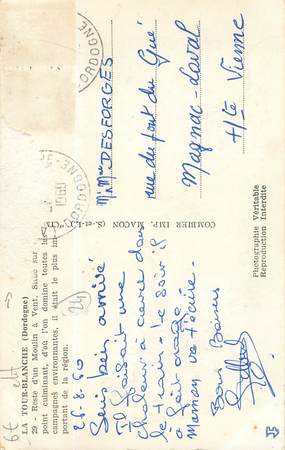 LA TOUR-BLANCHE (Dordogne)
29 - Reste d'un Moulin à Vent. Situé sur
point culminant, d'où l'on domine toutes les
campagnes environnantes, il était le plus im-
portant de la région.
26-8-60
Suis bien arrivé
Il faisait une
chaleur a crevé dans
le train - le soir il
a fait orage
Maman va t'écrire.
Bons Baisers
COMBIER IMP. MACON (S.-et-L.)
Photographie Véritable
Reproduction Interdite
DORDOGNE
1960
DORDOGNE
M. & Mme DESFORGES
rue du pont du Gué
Magnac-Laval
Hte Vienne
24
6€